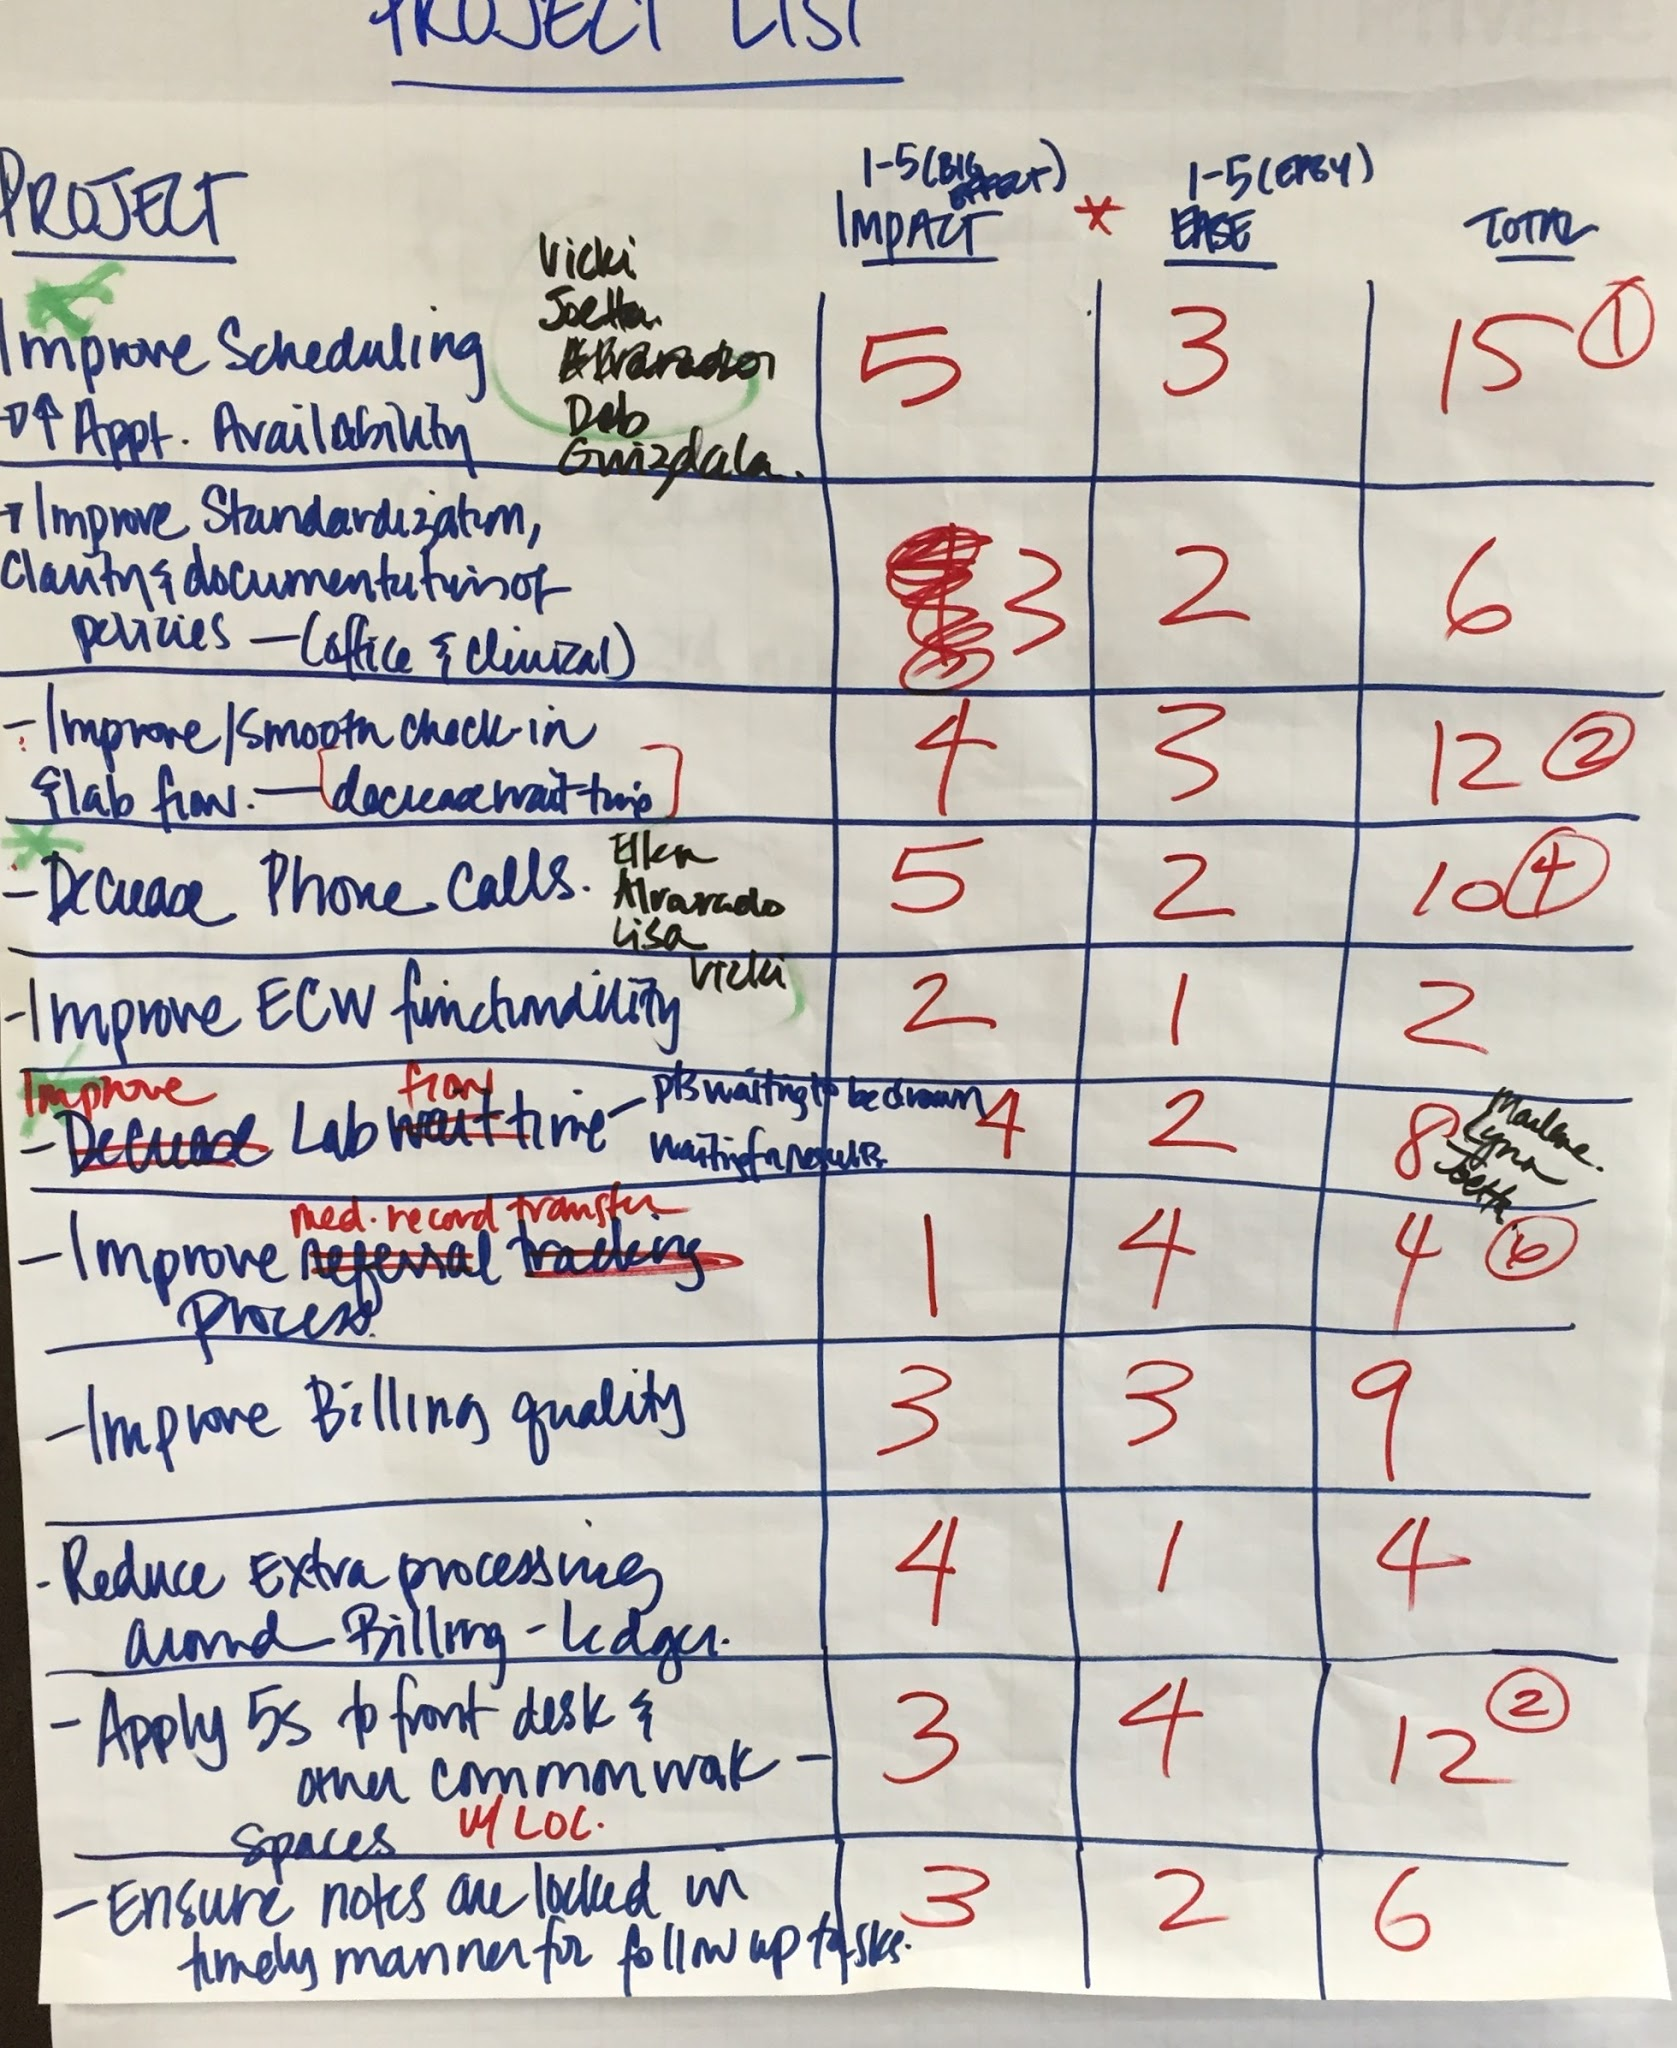 PROJECT LIST
PROJECT
1-5 (BIG EFFECT)
IMPACT
*
1-5 (EASY)
EASE
TOTAL
Improve Scheduling
↑ Appt. Availability
Vicki
Joetta
Alvarado
Deb
Gwizdala.
5 3 15 1
Improve Standardization,
Clarity & documentation of
policies — (office & clinical)
3 2 6
- Improve/smooth check-in
& lab flow. — [decrease wait time]
4 3 12 2
- Decrease Phone Calls.
Ellen
Alvarado
Lisa
Vicki
5 2 10 4
- Improve ECW functionality
2 1 2
Improve flow
- Decrease Lab wait time - pts waiting to be drawn
waiting for results
4 2 8
Marlene.
Lynn
Joetta
med. record transfer
- Improve referral tracking
process
1 4 4 6
- Improve Billing quality
3 3 9
- Reduce Extra processing
around Billing - Ledger.
4 1 4
- Apply 5s to front desk &
other common work -
spaces w/ LOC.
3 4 12 2
- Ensure notes are locked in
timely manner for follow up tasks.
3 2 6